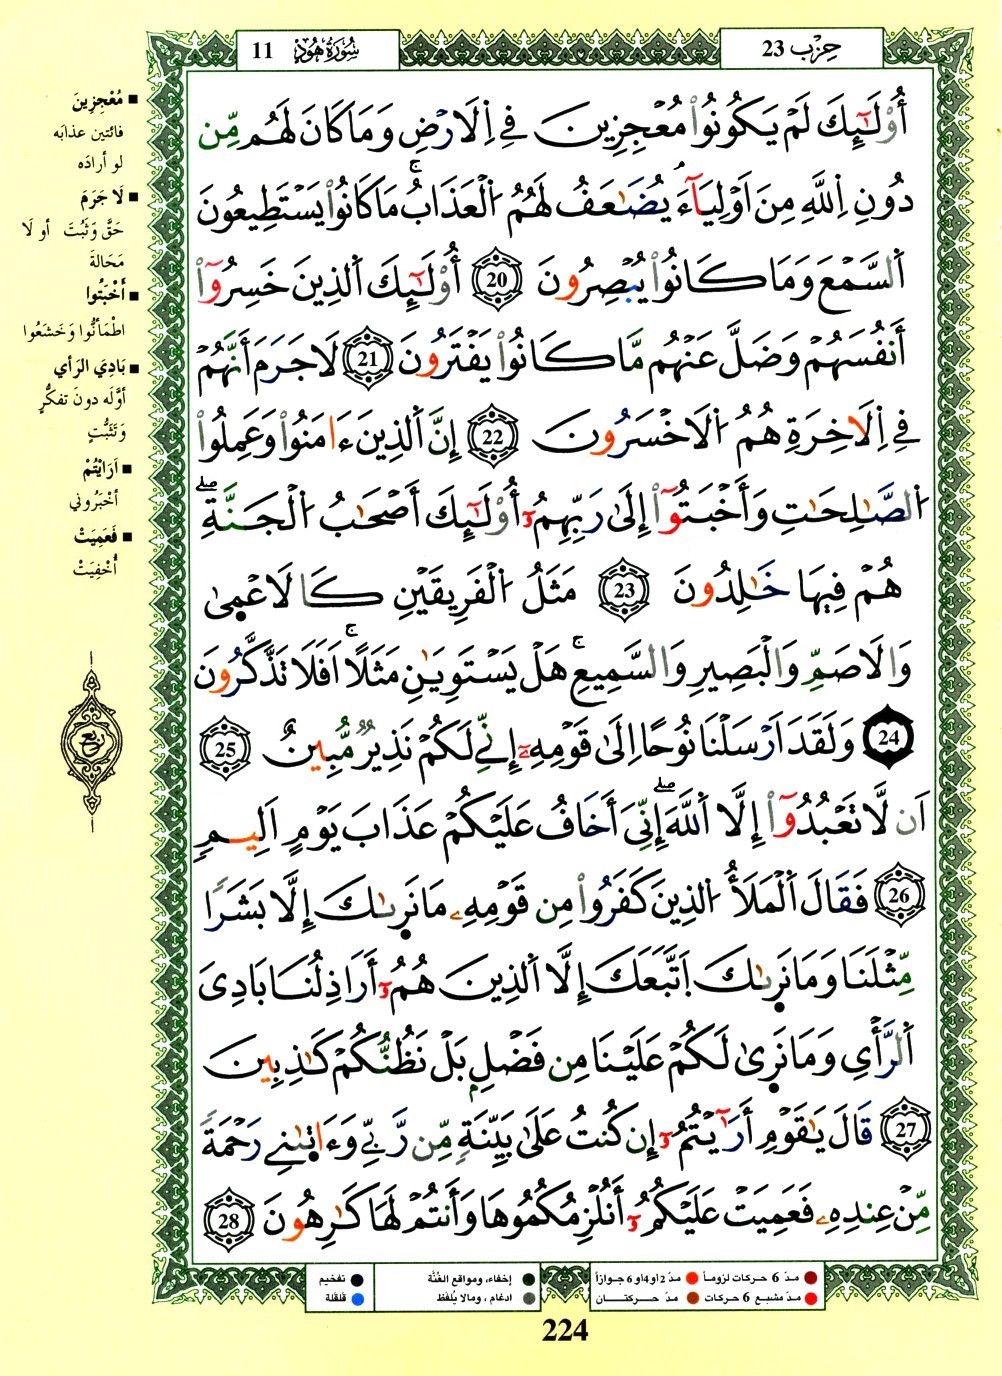 حِزْب 23
سُورَةُ هُود 11
أُوْلَٰٓئِكَ لَمْ يَكُونُواْ مُعْجِزِينَ فِي اِلَارْضِ وَمَا كَانَ لَهُم مِّن
دُونِ اِللَّهِ مِنَ اَوْلِيَآءَۘ يُضَٰعَفُ لَهُمُ اُلْعَذَابُۚ مَا كَانُواْ يَسْتَطِيعُونَ
اَلسَّمْعَ وَمَا كَانُواْ يُبْصِرُونَ 20 أُوْلَٰٓئِكَ اَلذِينَ خَسِرُوٓاْ
أَنفُسَهُمْ وَضَلَّ عَنْهُم مَّا كَانُواْ يَفْتَرُونَ 21 لَا جَرَمَ أَنَّهُمْ
فِي اِلَاخِرَةِ هُمُ اُلَاخْسَرُونَ 22 إِنَّ اَلذِينَ ءَامَنُواْ وَعَمِلُواْ
اُلصَّٰلِحَٰتِ وَأَخْبَتُوٓاْ إِلَىٰ رَبِّهِمُۥٓ أُوْلَٰٓئِكَ أَصْحَٰبُ اُلْجَنَّةِۖ
هُمْ فِيهَا خَٰلِدُونَ 23 مَثَلُ اُلْفَرِيقَيْنِ كَالَاعْمَىٰ
وَالَاصَمِّ وَالْبَصِيرِ وَالسَّمِيعِۚ هَلْ يَسْتَوِيَٰنِ مَثَلًاۚ اَفَلَا تَذَّكَّرُونَ
24 وَلَقَدَ اَرْسَلْنَا نُوحًا اِلَىٰ قَوْمِهِۦٓ إِنِّے لَكُمْ نَذِيرٌ مُّبِينٌ 25
اَن لَّا تَعْبُدُوٓاْ إِلَّا اَللَّهَۖ إِنِّيَ أَخَافُ عَلَيْكُمْ عَذَابَ يَوْمٍ اَلِيمٍ
26 فَقَالَ اَلْمَلَأُ اُلذِينَ كَفَرُواْ مِن قَوْمِهِۦ مَا نَرِىٰكَ إِلَّا بَشَرًا
مِّثْلَنَا وَمَا نَرِىٰكَ اَتَّبَعَكَ إِلَّا اَلذِينَ هُمُۥٓ أَرَاذِلُنَا بَادِيَ
اَلرَّأْيِ وَمَا نَرِىٰ لَكُمْ عَلَيْنَا مِن فَضْلٍ بَلْ نَظُنُّكُمْ كَٰذِبِينَ
27 قَالَ يَٰقَوْمِ أَرَٰٓيْتُمُۥٓ إِن كُنتُ عَلَىٰ بَيِّنَةٍ مِّن رَّبِّے وَءَاتَىٰنِے رَحْمَةً
مِّنْ عِندِهِۦ فَعَمِيَتْ عَلَيْكُمُۥٓ أَنُلْزِمُكُمُوهَا وَأَنتُمْ لَهَا كَٰرِهُونَ 28
■ مُعْجِزِينَ
فائتين عذابَه
لو أرادَه
■ لَا جَرَمَ
حَقَّ وَثَبُتَ أو لَا
مَحَالةَ
■ أَخْبَتُوا
اطْمَأنُّوا وَخَشَعُوا
■ بَادِيَ الرَّأي
أوَّلَه دونَ تفكُّرٍ
وَتَثَبُّتٍ
■ أَرَايْتُمْ
أخْبَرُوني
■ فَعَمِيَتْ
أُخْفِيَتْ
ربع
مدّ 6 حركات لزوماً
مدّ 2 أو 4 أو 6 جوازاً
مدّ مشبع 6 حركات
مدّ حركتان
إخفاء، ومواقع الغُنَّة
ادغام ، ومالا يُلفَظ
تفخيم
قلقلة
224